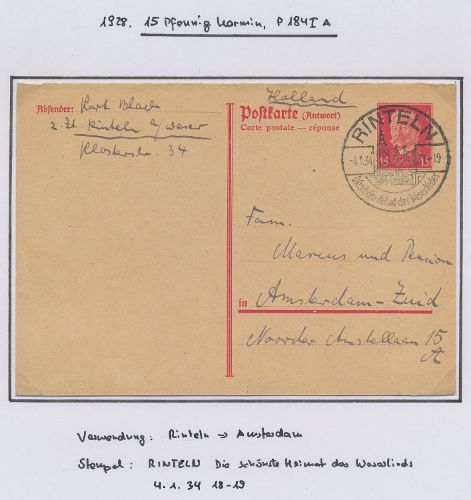 1928. 15 Pfennig karmin, P 184 I A
Absender: Kurt Blach
z. Zt. Rinteln a/Weser
Klosterstr. 34
Holland
Postkarte (Antwort)
Carte postale — réponse
RINTELN
-4.1.34 19
15 15
Fam.
Marcus und Pension
in Amsterdam-Zuid
Noorder Amstellaan 15
A
Verwendung: Rinteln → Amsterdam
Stempel: RINTELN Die schönste Heimat des Weserlinds
4.1.34 18-19